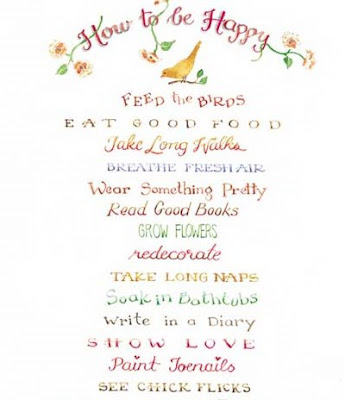 How to be Happy
FEED the BIRDS
EAT GOOD FOOD
Take Long Walks
BREATHE FRESH AIR
Wear Something Pretty
Read Good Books
GROW FLOWERS
redecorate
TAKE LONG NAPS
Soak in Bathtubs
Write in a Diary
SHOW LOVE
Paint Toenails
SEE CHICK FLICKS